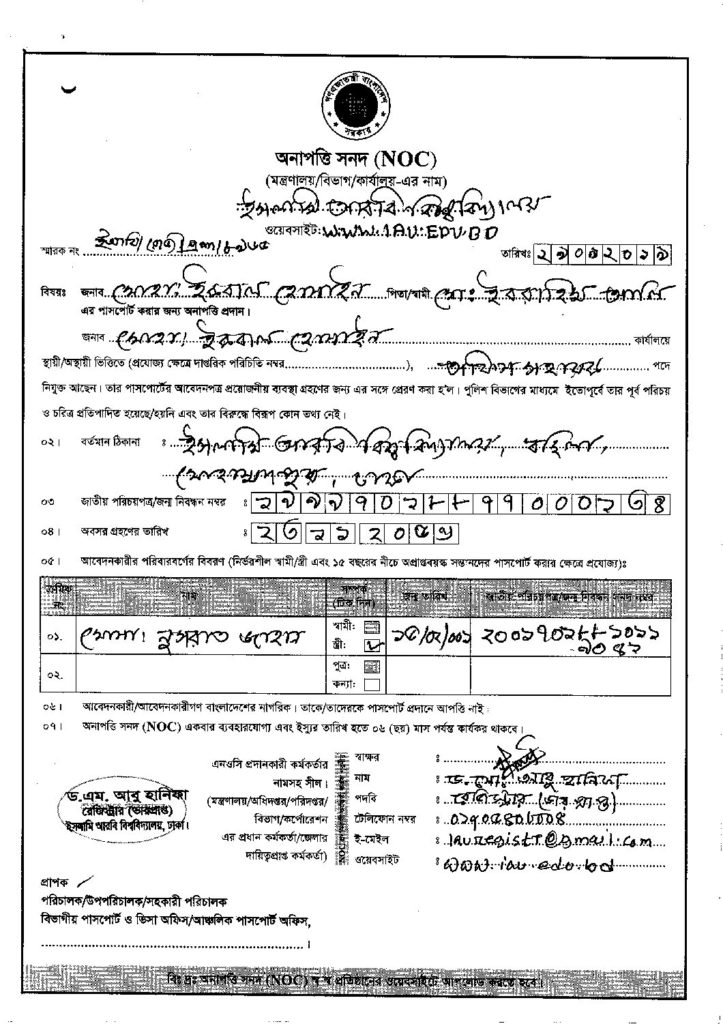 গণপ্রজাতন্ত্রী বাংলাদেশ
সরকার
অনাপত্তি সনদ (NOC)
(মন্ত্রণালয়/বিভাগ/কার্যালয়-এর নাম)
ইসলামি আরবি বিশ্ববিদ্যালয়
ওয়েবসাইট: WWW.IAU.EDU.BD
স্মারক নং
তারিখঃ
বিষয়ঃ জনাব মোহা: ইকবাল হোসাইন পিতা/স্বামী মো: ইবরাহিম আলি
এর পাসপোর্ট করার জন্য অনাপত্তি প্রদান।
জনাব মোহা: ইকবাল হোসাইন কার্যালয়ে
স্থায়ী/অস্থায়ী ভিত্তিতে (প্রযোজ্য ক্ষেত্রে দাপ্তরিক পরিচিতি নম্বর), অফিস সহায়ক পদে
নিযুক্ত আছেন। তার পাসপোর্টের আবেদনপত্র প্রয়োজনীয় ব্যবস্থা গ্রহণের জন্য এর সঙ্গে প্রেরণ করা হ'ল। পুলিশ বিভাগের মাধ্যমে ইতোপূর্বে তার পূর্ব পরিচয়
ও চরিত্র প্রতিপাদিত হয়েছে/হয়নি এবং তার বিরুদ্ধে বিরূপ কোন তথ্য নেই।
০২। বর্তমান ঠিকানা : ইসলামি আরবি বিশ্ববিদ্যালয়, বছিলা,
মোহাম্মদপুর, ঢাকা
০৩ জাতীয় পরিচয়পত্র/জন্ম নিবন্ধন নম্বর :
০৪। অবসর গ্রহণের তারিখ :
০৫। আবেদনকারীর পরিবারবর্গের বিবরণ (নির্ভরশীল স্বামী/স্ত্রী এবং ১৫ বছরের নীচে অপ্রাপ্তবয়স্ক সন্তানদের পাসপোর্ট করার ক্ষেত্রে প্রযোজ্য)ঃ
ক্রমিক নং নাম সম্পর্ক (টিক দিন) জন্ম তারিখ জাতীয় পরিচয়পত্র/জন্ম নিবন্ধন সনদ নম্বর
০১. মোসা: নুসরাত জাহান স্বামী: স্ত্রী:
০২. পুত্র: কন্যা:
০৬। আবেদনকারী/আবেদনকারীগণ বাংলাদেশের নাগরিক। তাকে/তাদেরকে পাসপোর্ট প্রদানে আপত্তি নাই।
০৭। অনাপত্তি সনদ (NOC) একবার ব্যবহারযোগ্য এবং ইস্যুর তারিখ হতে ০৬ (ছয়) মাস পর্যন্ত কার্যকর থাকবে।
এনওসি প্রদানকারী কর্মকর্তার
নামসহ সীল।
(মন্ত্রণালয়/অধিদপ্তর/পরিদপ্তর/
বিভাগ/কর্পোরেশন
এর প্রধান কর্মকর্তা/জেলার
দায়িত্বপ্রাপ্ত কর্মকর্তা)
স্বাক্ষর :
নাম : ড. মো: আবু হানিফা
পদবি : রেজিস্ট্রার (ভারপ্রাপ্ত)
টেলিফোন নম্বর :
ই-মেইল :
ওয়েবসাইট : www.iau.edu.bd
ড.এম. আবু হানিফা
রেজিস্ট্রার (ভারপ্রাপ্ত)
ইসলামি আরবি বিশ্ববিদ্যালয়, ঢাকা।
প্রাপক
পরিচালক/উপপরিচালক/সহকারী পরিচালক
বিভাগীয় পাসপোর্ট ও ভিসা অফিস/আঞ্চলিক পাসপোর্ট অফিস,
বিঃ দ্রঃ অনাপত্তি সনদ (NOC) স্ব স্ব প্রতিষ্ঠানের ওয়েবসাইটে আপলোড করতে হবে।